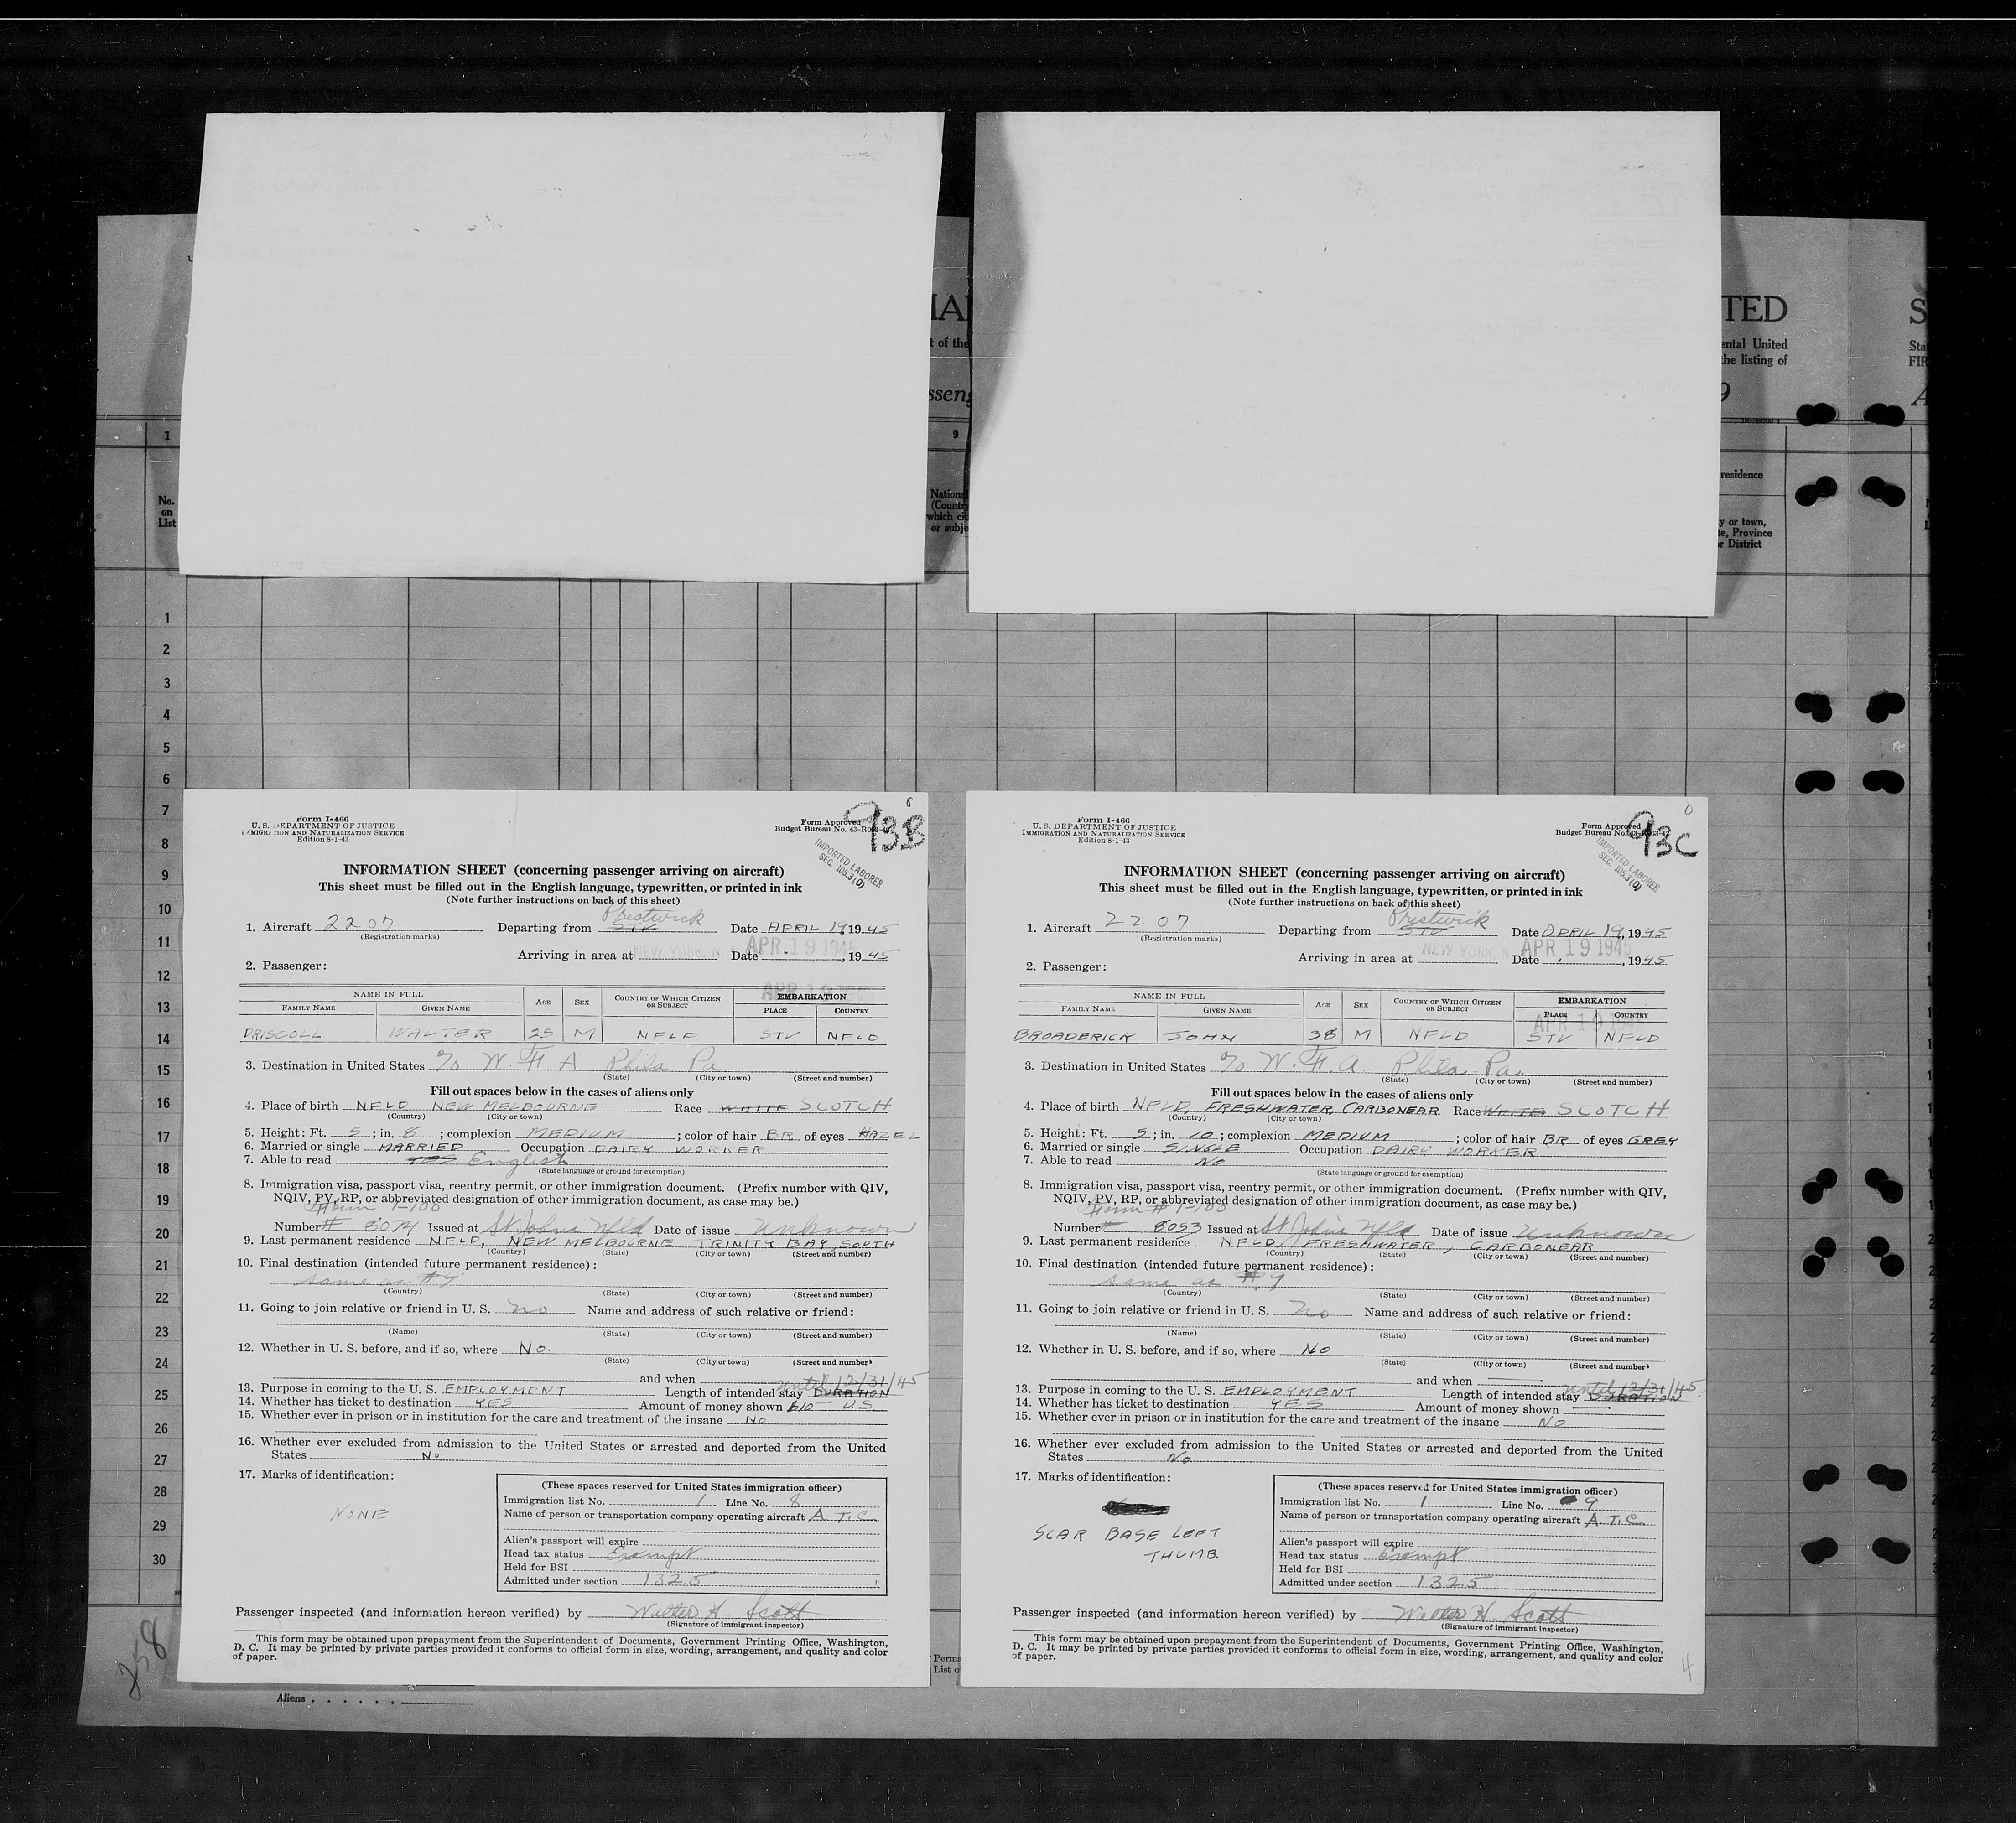 IAL
TED
S
t of the
ental United
Sta
the listing of
FIR
ssen
9
A
1
9
residence
No.
on
List
National
(Country
which cit
or subje
y or town,
te, Province
r District
1
2
3
4
5
6
7
8
9
10
11
12
13
14
15
16
17
18
19
20
21
22
23
24
25
26
27
28
29
30
258
Aliens . . . . . .
Perma
List o
Form I-466
U. S. DEPARTMENT OF JUSTICE
IMMIGRATION AND NATURALIZATION SERVICE
Edition 8-1-43
Form Approved
Budget Bureau No. 43-R063-
93B
IMPORTED LABORER
SEC. 105.3(Q)
INFORMATION SHEET (concerning passenger arriving on aircraft)
This sheet must be filled out in the English language, typewritten, or printed in ink
(Note further instructions on back of this sheet)
1. Aircraft 2207 Departing from STV Prestwick Date APRIL 19, 1945
(Registration marks)
Arriving in area at NEW YORK, N. Date APR 19 1945, 1945
2. Passenger:
NAME IN FULL AGE SEX COUNTRY OF WHICH CITIZEN OR SUBJECT EMBARKATION
FAMILY NAME GIVEN NAME PLACE COUNTRY
DRISCOLL WALTER 25 M NFLD STV NFLD
3. Destination in United States c/o W. F. A. Phila Pa
(State) (City or town) (Street and number)
Fill out spaces below in the cases of aliens only
4. Place of birth NFLD NEW MELBOURNE Race WHITE SCOTCH
(Country) (City or town)
5. Height: Ft. 5; in. 8; complexion MEDIUM; color of hair BR of eyes HAZEL
6. Married or single MARRIED Occupation DAIRY WORKER
7. Able to read YES English
(State language or ground for exemption)
8. Immigration visa, passport visa, reentry permit, or other immigration document. (Prefix number with QIV,
NQIV, PV, RP, or abbreviated designation of other immigration document, as case may be.)
Form I-100
Number # 8074 Issued at St Johns Nfld Date of issue Unknown
9. Last permanent residence NFLD, NEW MELBOURNE TRINITY BAY SOUTH
(Country) (State) (City or town) (Street and number)
10. Final destination (intended future permanent residence):
same as #9
(Country) (State) (City or town) (Street and number)
11. Going to join relative or friend in U. S. no Name and address of such relative or friend:
(Name) (State) (City or town) (Street and number)
12. Whether in U. S. before, and if so, where No.
(State) (City or town) (Street and number)
and when
until 12/31/45
13. Purpose in coming to the U. S. EMPLOYMENT Length of intended stay DURATION
14. Whether has ticket to destination YES Amount of money shown $10— U.S.
15. Whether ever in prison or in institution for the care and treatment of the insane NO
16. Whether ever excluded from admission to the United States or arrested and deported from the United
States No
17. Marks of identification:
NONE
(These spaces reserved for United States immigration officer)
Immigration list No. 1 Line No. 8
Name of person or transportation company operating aircraft A.T.C.
Alien's passport will expire
Head tax status Exempt
Held for BSI
Admitted under section 132.5
Passenger inspected (and information hereon verified) by Walter H. Scott
(Signature of immigrant inspector)
This form may be obtained upon prepayment from the Superintendent of Documents, Government Printing Office, Washington,
D. C. It may be printed by private parties provided it conforms to official form in size, wording, arrangement, and quality and color
of paper.
Form I-466
U. S. DEPARTMENT OF JUSTICE
IMMIGRATION AND NATURALIZATION SERVICE
Edition 8-1-43
Form Approved
Budget Bureau No. 43-R063-4
93C
IMPORTED LABORER
SEC. 105.3(Q)
INFORMATION SHEET (concerning passenger arriving on aircraft)
This sheet must be filled out in the English language, typewritten, or printed in ink
(Note further instructions on back of this sheet)
1. Aircraft 2207 Departing from STV Prestwick Date APRIL 19, 1945
(Registration marks)
Arriving in area at NEW YORK, N. Date APR 19 1945, 1945
2. Passenger:
NAME IN FULL AGE SEX COUNTRY OF WHICH CITIZEN OR SUBJECT EMBARKATION
FAMILY NAME GIVEN NAME PLACE COUNTRY
APR 19 1945
BROADERICK JOHN 38 M NFLD STV NFLD
3. Destination in United States c/o W. F. A. Phila. Pa.
(State) (City or town) (Street and number)
Fill out spaces below in the cases of aliens only
4. Place of birth NFLD, FRESHWATER, CARBONEAR Race WHITE SCOTCH
(Country) (City or town)
5. Height: Ft. 5; in. 10; complexion MEDIUM; color of hair BR of eyes GREY
6. Married or single SINGLE Occupation DAIRY WORKER
7. Able to read NO
(State language or ground for exemption)
8. Immigration visa, passport visa, reentry permit, or other immigration document. (Prefix number with QIV,
NQIV, PV, RP, or abbreviated designation of other immigration document, as case may be.)
Form # I-100
Number # 8053 Issued at St John's Nfld Date of issue Unknown
9. Last permanent residence NFLD, FRESHWATER, CARBONEAR
(Country) (State) (City or town) (Street and number)
10. Final destination (intended future permanent residence):
same as #9
(Country) (State) (City or town) (Street and number)
11. Going to join relative or friend in U. S. no Name and address of such relative or friend:
(Name) (State) (City or town) (Street and number)
12. Whether in U. S. before, and if so, where NO
(State) (City or town) (Street and number)
and when
until 12/31/45
13. Purpose in coming to the U. S. EMPLOYMENT Length of intended stay DURATION
14. Whether has ticket to destination YES Amount of money shown
15. Whether ever in prison or in institution for the care and treatment of the insane NO
16. Whether ever excluded from admission to the United States or arrested and deported from the United
States No
17. Marks of identification:
SCAR BASE LEFT
THUMB.
(These spaces reserved for United States immigration officer)
Immigration list No. 1 Line No. 9
Name of person or transportation company operating aircraft A.T.C.
Alien's passport will expire
Head tax status Exempt
Held for BSI
Admitted under section 132.5
Passenger inspected (and information hereon verified) by Walter H. Scott
(Signature of immigrant inspector)
This form may be obtained upon prepayment from the Superintendent of Documents, Government Printing Office, Washington,
D. C. It may be printed by private parties provided it conforms to official form in size, wording, arrangement, and quality and color
of paper.
4